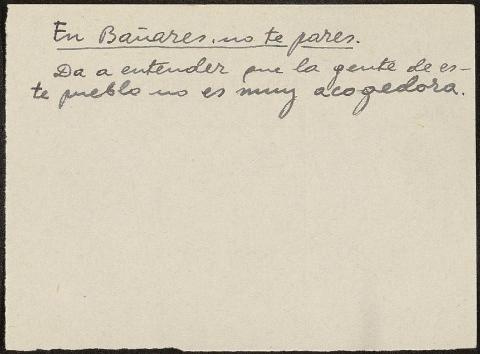 En Bañares, no te pares.
Da a entender que la gente de es-
te pueblo no es muy acogedora.